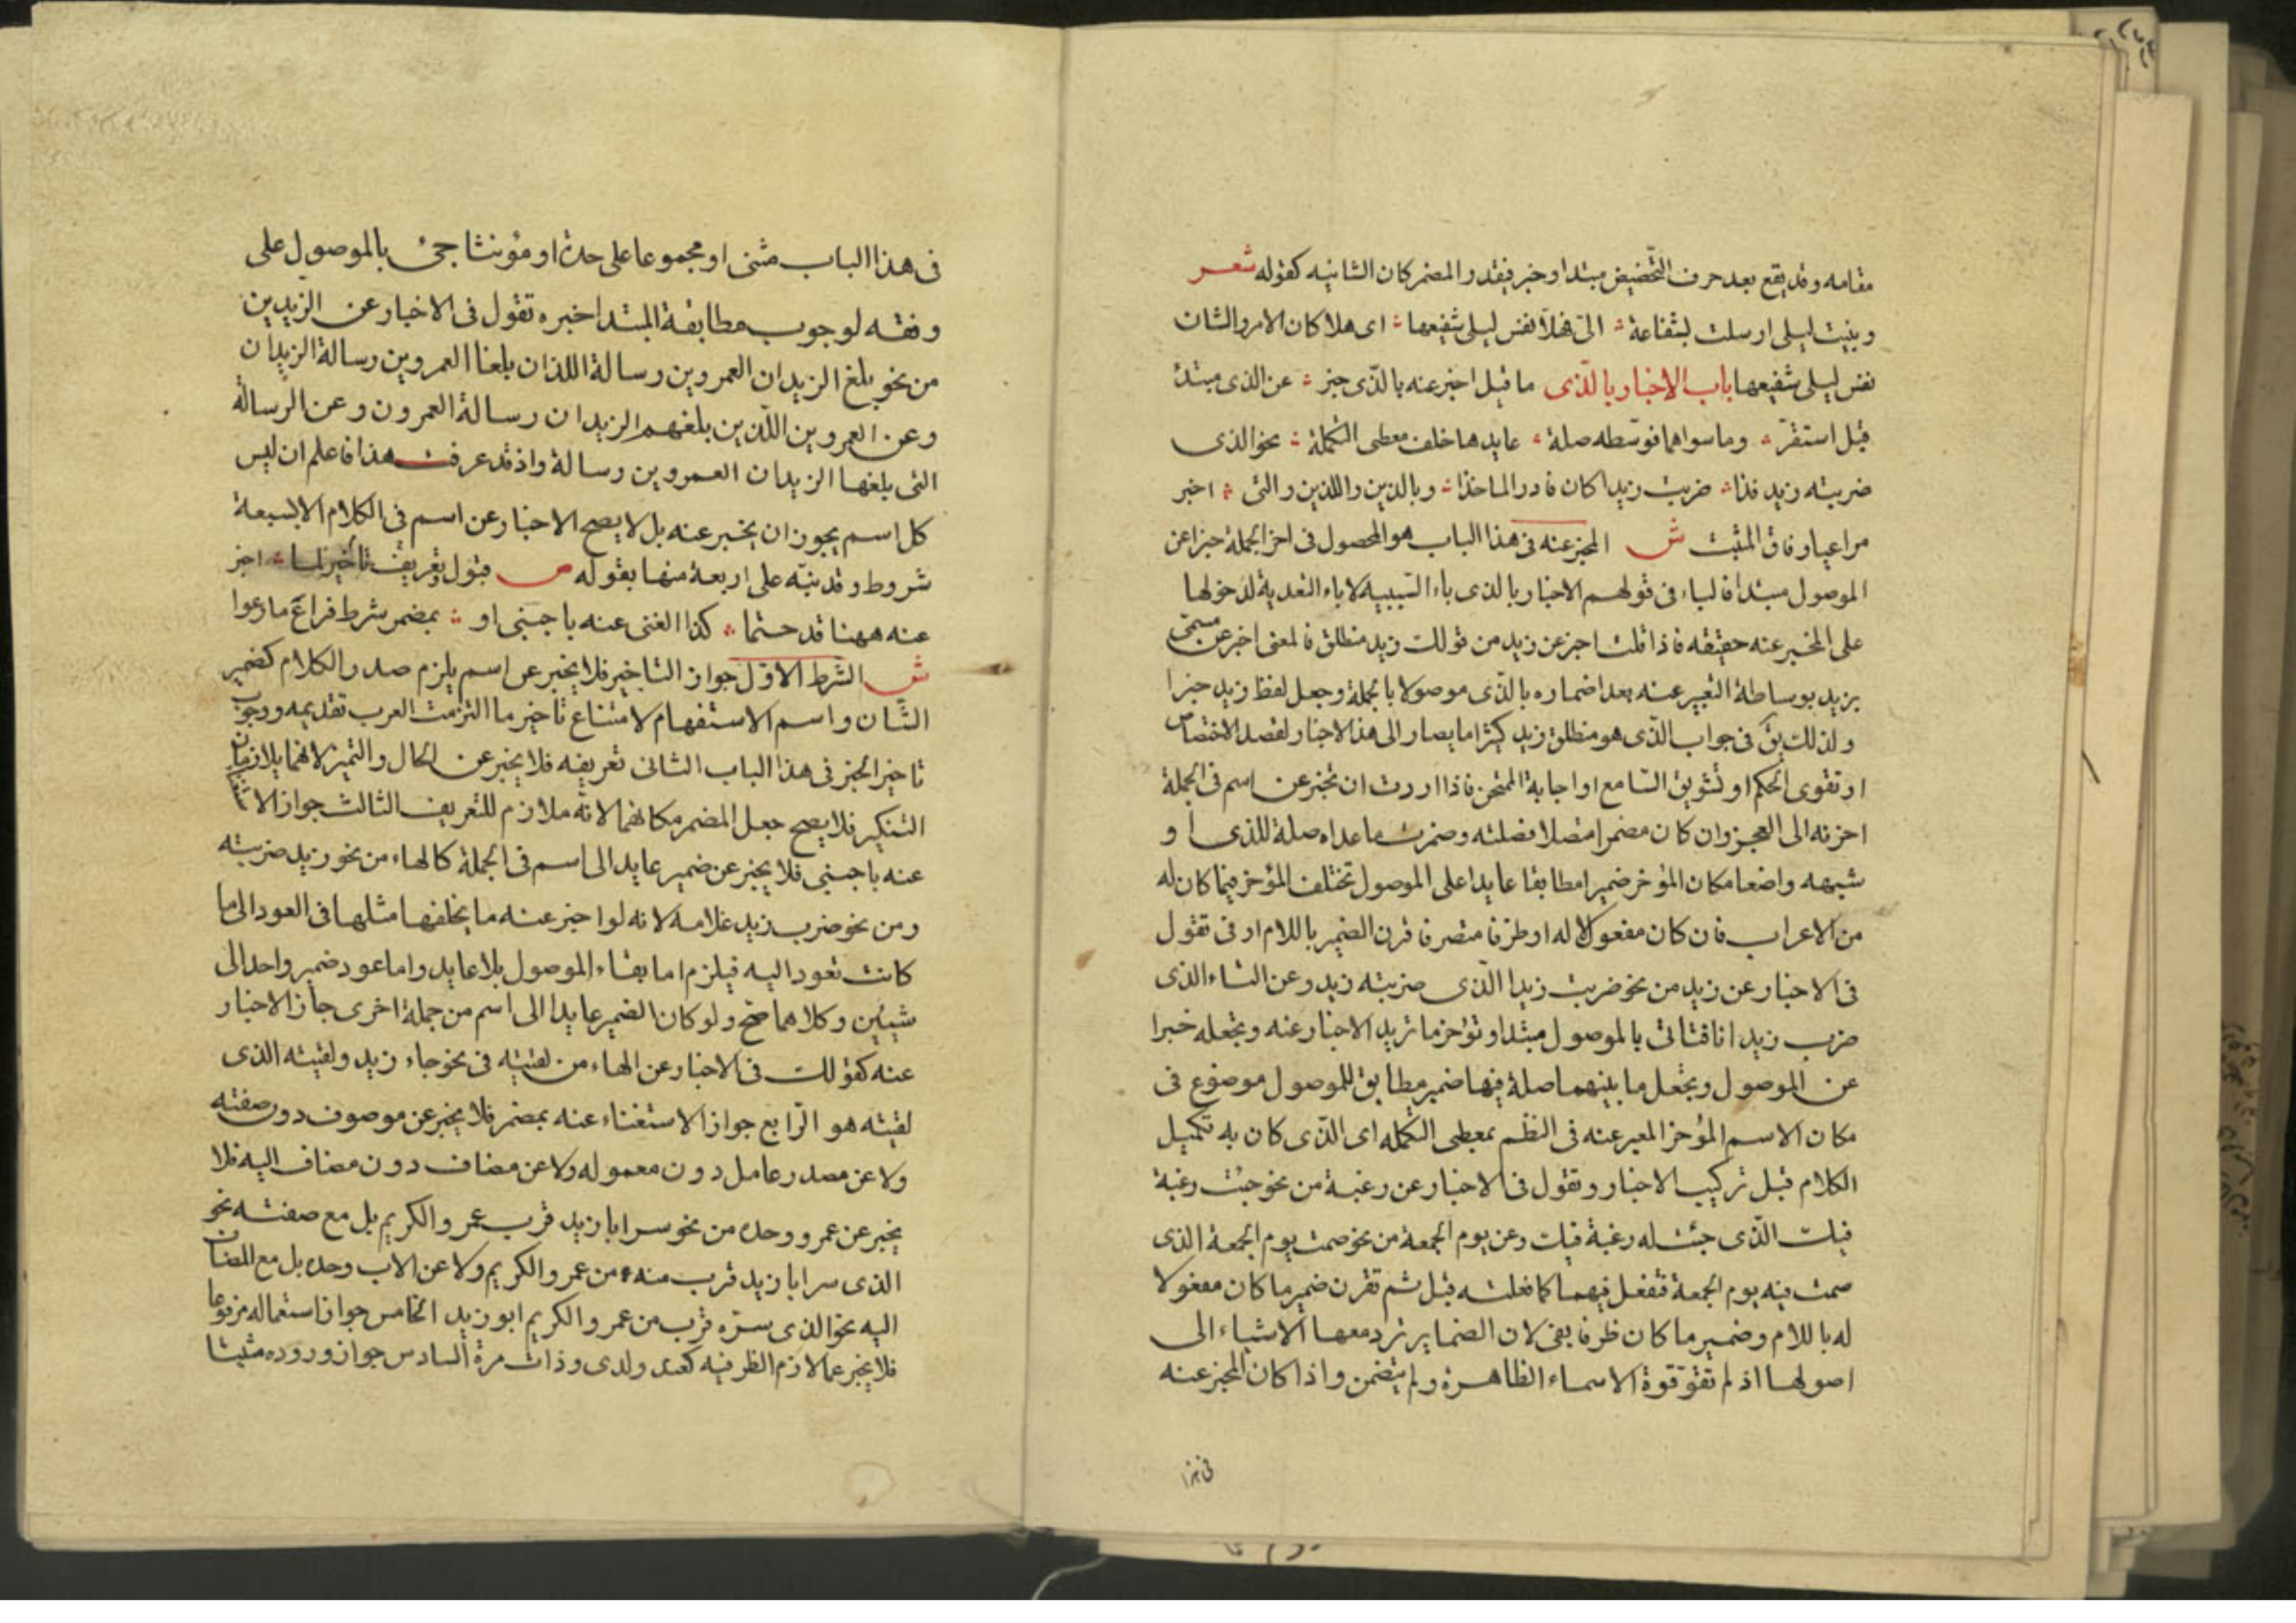 مقامه وقد يقع بعد حرف التحضيض مبتدا وخبر فيقدر المضمر كان الشانيه كقوله شعر
ونبئت ليلى ارسلت بشفاعة الىّ فهلّا نفس ليلى شفيعها اى هلا كان الامر والشان
نفس ليلى شفيعها باب الاخبار بالّذى ما قيل اخبر عنه بالّذى خبر عن الذى مبتدئ
قبل استقرّ وما سواهما فوسّطه صلة عايدها خلف معطى التكملة نحو الذى
ضربته زيد فذا ضربت زيدا كان فادر الماخذا وبالذين واللذين والتى اخبر
مراعيا وفاق المثبت ش المخبر عنه فى هذا الباب هو المحصول فى اخر الجملة خبرا عن
الموصول مبتدا فالباء فى قولهم الاخبار بالذى باء السّببيه لا باء التعدية لدخولها
على المخبر عنه حقيقه فاذا قلت اخبر عن زيد من قولك زيد منطلق فالمعنى اخبر عن مسمّى
بزيد بوساطة التعبير عنه بعد اضماره بالّذى موصولا بالجملة وجعل لفظ زيد خبرا
ولذلك يق فى جواب الّذى هو منطلق زيد كثيرا ما يصار الى هذا الاخبار لقصد الاختصاص
او تقوى الحكم او تشويق السّامع او اجابة الممتحن فاذا اردت ان تخبر عن اسم فى الجملة
اخرته الى العجز وان كان مضمرا متصلا فصلته وصيرت ما عداه صلة للذى او
شبهه واضعا مكان المؤخر ضميرا مطابقا عايدا على الموصول تختلف المؤخر فيما كان له
من الاعراب فان كان مفعولا له او ظرفا متصرفا قرن الضمير باللام او فى تقول
فى الاخبار عن زيد من نحو ضربت زيدا الّذى ضربته زيد وعن التاء الذى
ضرب زيدا انا فتاتى بالموصول مبتدا وتؤخر ما تريد الاخبار عنه وتجعله خبرا
عن الموصول وتجعل ما بينهما صلة فيها ضمير مطابق للموصول موضوع فى
مكان الاسم المؤخر المعبر عنه فى النظم بمعطى التكمله اى الّذى كان به تكميل
الكلام قبل تركيب الاخبار وتقول فى الاخبار عن رغبة من نحو جئت رغبة
فيك الّذى جئت له رغبة فيك وعن يوم الجمعة من نحو صمت يوم الجمعة الذى
صمت فيه يوم الجمعة فتفعل فيهما كما فعلته قبل ثم تقرن ضمير ما كان مفعولا
له باللام وضمير ما كان ظرفا بفى لان الضماير ترد معها الاشياء الى
اصولها اذ لم تقو قوة الاسماء الظاهرة ولم يتضمن واذا كان المخبر عنه
فى هذا
فى هذا الباب مثنى او مجموعا على حدة او مؤنثا جئ بالموصول على
وفقه لوجوب مطابقة المبتدا خبره تقول فى الاخبار عن الزيدين
من نحو بلغ الزيدان العمروين رسالة اللذان بلغا العمروين رسالة الزيدان
وعن العمروين اللّذين بلغهم الزيدان رسالة العمرون وعن الرسالة
التى بلغها الزيدان العمروين رسالة واذ قد عرفت هذا فاعلم ان ليس
كل اسم يجوز ان يخبر عنه بل لا يصح الاخبار عن اسم فى الكلام الا بسبعة
شروط وقد نبّه على اربعة منها بقوله ص قبول تاخير وتعريف لما اخبر
عنه ههنا قد حتما كذا الغنى عنه باجنبى او بمضمر شرط فراع ما رعوا
ش الشرط الاوّل جواز التاخير فلا يخبر عن اسم يلزم صدر الكلام كضمير
الشّان واسم الاستفهام لامتناع تاخير ما التزمت العرب تقديمه ووجوب
تاخير الخبر فى هذا الباب الثانى تعريفه فلا يخبر عن الحال والتميز لانهما يلازمان
التنكير فلا يصح جعل المضمر مكانهما لانه ملازم للتعريف الثالث جواز الاستغناء
عنه باجنبى فلا يخبر عن ضمير عايد الى اسم فى الجملة كالهاء من نحو زيد ضربته
ومن نحو ضرب زيد غلامه لانه لو اخبر عنه ما يخلفها مثلها فى العود الى ما
كانت تعود اليه فيلزم اما بقاء الموصول بلا عايد واما عود ضمير واحد الى
شيئين وكلاهما صح ولو كان الضمير عايدا الى اسم من جملة اخرى جاز الاخبار
عنه كقولك فى الاخبار عن الهاء من لقيته فى نحو جاء زيد ولقيته الذى
لقيته هو الرّابع جواز الاستغناء عنه بمضمر فلا يخبر عن موصوف دون صفته
ولا عن مصدر عامل دون معموله ولا عن مضاف دون مضاف اليه فلا
يخبر عن عمرو وحده من نحو سر ابا زيد قرب عمرو الكريم بل مع صفته نحو
الذى سر ابا زيد قرب منه عمرو الكريم ولا عن الاب وحده بل مع المضاف
اليه نحو الذى سرّه قرب من عمرو الكريم ابو زيد الخامس جواز استعماله مرفوعا
فلا يخبر عما لازم الظرفيه كعند ولدى وذات مرة السادس جواز وروده مثبتا